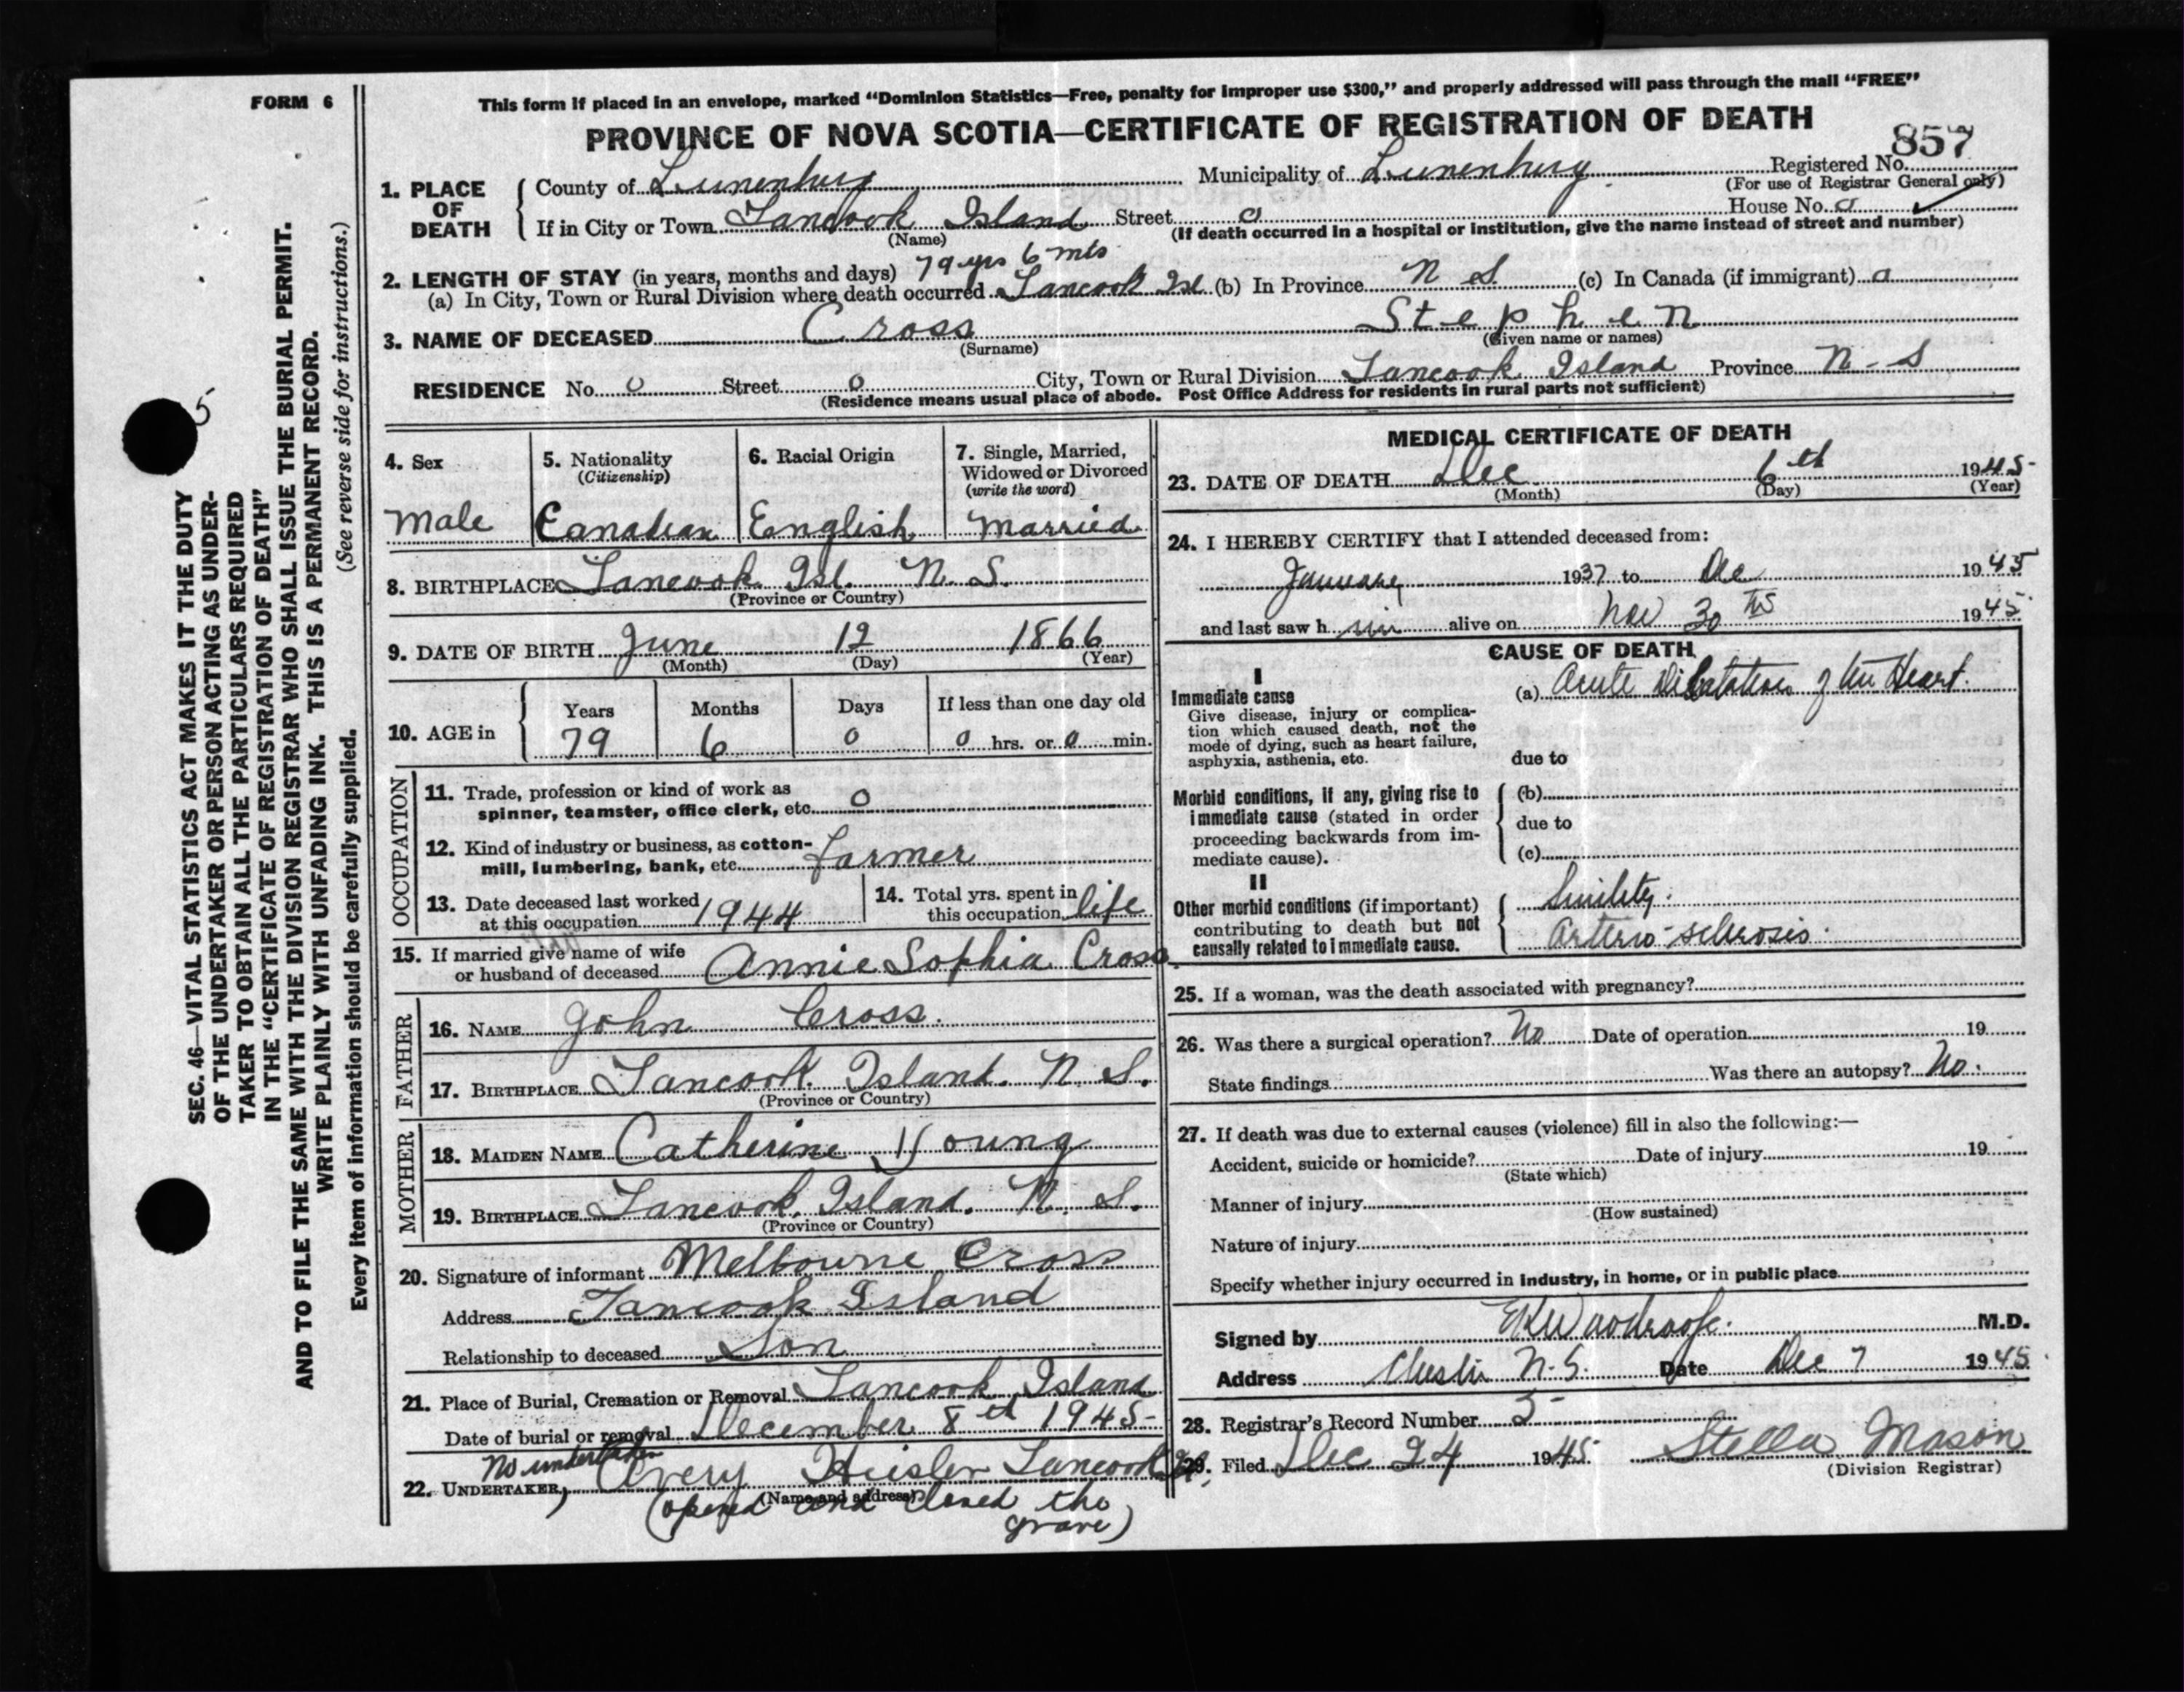 FORM 6
This form if placed in an envelope, marked “Dominion Statistics—Free, penalty for improper use $300,” and properly addressed will pass through the mail “FREE”
PROVINCE OF NOVA SCOTIA—CERTIFICATE OF REGISTRATION OF DEATH
857
1. PLACE OF DEATH
County of Lunenburg Municipality of Lunenburg Registered No.
(For use of Registrar General only)
House No. 0
If in City or Town Tancook Island Street 0
(Name) (If death occurred in a hospital or institution, give the name instead of street and number)
2. LENGTH OF STAY (in years, months and days) 79 yrs 6 mts
(a) In City, Town or Rural Division where death occurred Tancook Isl (b) In Province N S (c) In Canada (if immigrant) 0
3. NAME OF DECEASED Cross Stephen
(Surname) (Given name or names)
RESIDENCE No. 0 Street 0 City, Town or Rural Division Tancook Island Province N-S
(Residence means usual place of abode. Post Office Address for residents in rural parts not sufficient)
4. Sex
Male
5. Nationality
(Citizenship)
Canadian
6. Racial Origin
English
7. Single, Married,
Widowed or Divorced
(write the word)
Married
8. BIRTHPLACE Tancook Isl. N. S.
(Province or Country)
9. DATE OF BIRTH June 12 1866
(Month) (Day) (Year)
10. AGE in
Years Months Days If less than one day old
79 6 0 0 hrs. or 0 min.
OCCUPATION
11. Trade, profession or kind of work as
spinner, teamster, office clerk, etc. 0
12. Kind of industry or business, as cotton-
mill, lumbering, bank, etc. farmer
13. Date deceased last worked
at this occupation 1944
14. Total yrs. spent in
this occupation life
15. If married give name of wife
or husband of deceased Annie Sophia Cross
FATHER
16. NAME John Cross.
17. BIRTHPLACE Tancook Island. N. S.
(Province or Country)
MOTHER
18. MAIDEN NAME Catherine Young
19. BIRTHPLACE Tancook Island. N. S.
(Province or Country)
20. Signature of informant Melbourne Cross
Address Tancook Island
Relationship to deceased Son
21. Place of Burial, Cremation or Removal Tancook Island
Date of burial or removal December 8th 1945
No undertaker
22. UNDERTAKER, Avery Heisler Tancook Isl.
(Name and address)
(opened and closed the
grave)
MEDICAL CERTIFICATE OF DEATH
23. DATE OF DEATH Dec 6th 1945
(Month) (Day) (Year)
24. I HEREBY CERTIFY that I attended deceased from:
January 1937 to Dec 1945
and last saw h im alive on Nov 30th 1945
CAUSE OF DEATH
I
Immediate cause
Give disease, injury or complica-
tion which caused death, not the
mode of dying, such as heart failure,
asphyxia, asthenia, etc.
(a) Acute Dilatation of the Heart.
due to
Morbid conditions, if any, giving rise to
immediate cause (stated in order
proceeding backwards from im-
mediate cause).
(b)
due to
(c)
II
Other morbid conditions (if important)
contributing to death but not
causally related to immediate cause.
Senility.
Arterio-sclerosis.
25. If a woman, was the death associated with pregnancy?
26. Was there a surgical operation? No Date of operation 19
State findings Was there an autopsy? No.
27. If death was due to external causes (violence) fill in also the following:—
Accident, suicide or homicide? Date of injury 19
(State which)
Manner of injury
(How sustained)
Nature of injury
Specify whether injury occurred in industry, in home, or in public place
Signed by M.D.
Address Chester N.S. Date Dec 7 1945
28. Registrar's Record Number 5
29. Filed Dec 24 1945 Stella Mason
(Division Registrar)
5
SEC. 46—VITAL STATISTICS ACT MAKES IT THE DUTY
OF THE UNDERTAKER OR PERSON ACTING AS UNDER-
TAKER TO OBTAIN ALL THE PARTICULARS REQUIRED
IN THE “CERTIFICATE OF REGISTRATION OF DEATH”
AND TO FILE THE SAME WITH THE DIVISION REGISTRAR WHO SHALL ISSUE THE BURIAL PERMIT.
WRITE PLAINLY WITH UNFADING INK. THIS IS A PERMANENT RECORD.
(See reverse side for instructions.)
Every item of information should be carefully supplied.